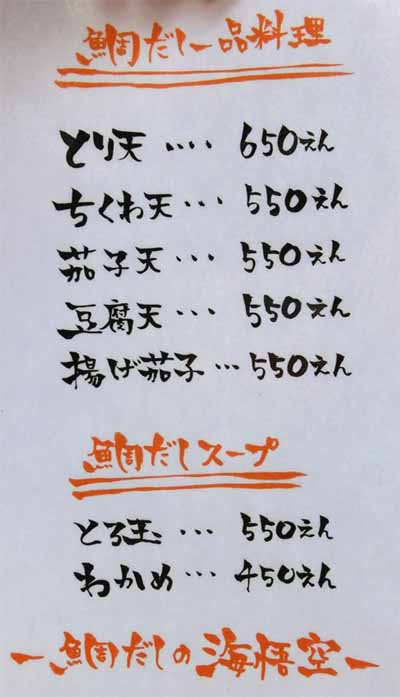 鯛だし一品料理
とり天 ‥‥ 650えん
ちくわ天 … 550えん
茄子天 … 550えん
豆腐天 … 550えん
揚げ茄子 … 550えん
鯛だしスープ
とろ玉 … 550えん
わかめ … 450えん
－鯛だしの海悟空－